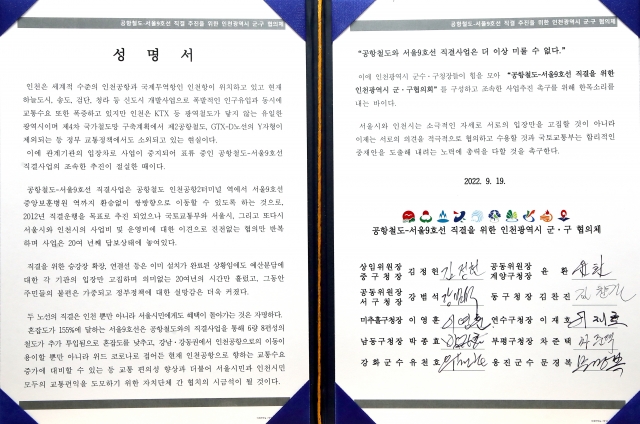 공항철도-서울9호선 직결 추진을 위한 인천광역시 군·구 협의체
성 명 서
인천은 세계적 수준의 인천공항과 국제무역항인 인천항이 위치하고 있고 현재
하늘도시, 송도, 검단, 청라 등 신도시 개발사업으로 폭발적인 인구유입과 동시에
교통수요 또한 폭증하고 있지만 인천은 KTX 등 광역철도가 닿지 않는 유일한
광역시이며 제4차 국가철도망 구축계획에서 제2공항철도, GTX-D노선의 Y자형이
제외되는 등 정부 교통정책에서도 소외되고 있는 현실이다.
이에 관계기관의 입장차로 사업이 중지되어 표류 중인 공항철도-서울9호선
직결사업의 조속한 추진이 절실한 때이다.
공항철도-서울9호선 직결사업은 공항철도 인천공항2터미널 역에서 서울9호선
중앙보훈병원 역까지 환승없이 쌍방향으로 이동할 수 있도록 하는 것으로,
2012년 직결운행을 목표로 추진 되었으나 국토교통부와 서울시, 그리고 또다시
서울시와 인천시의 사업비 및 운영비에 대한 이견으로 진전없는 협의만 반복
하며 사업은 20여 년째 답보상태에 놓여있다.
직결을 위한 승강장 확장, 연결선 등은 이미 설치가 완료된 상황임에도 예산분담에
대한 각 기관의 입장만 고집하며 의미없는 20여년의 시간만 흘렀고, 그동안
주민들의 불편은 가중되고 정부정책에 대한 실망감은 더욱 커졌다.
두 노선의 직결은 인천 뿐만 아니라 서울시민에게도 혜택이 돌아가는 것은 자명하다.
혼잡도가 155%에 달하는 서울9호선은 공항철도와의 직결사업을 통해 6량 8편성의
열차가 추가 투입됨으로 혼잡도를 낮추고, 강남·강동원에서 인천공항으로의 이동이
용이할 뿐만 아니라 위드 코로나로 접어든 현재 인천공항으로 향하는 교통수요
증가에 대비할 수 있는 등 교통 편의성 향상과 더불어 서울시민과 인천시민
모두의 교통편익을 도모하기 위한 자치단체 간 협치의 시금석이 될 것이다.
공항철도-서울9호선 직결 추진을 위한 인천광역시 군·구 협의체
“공항철도와 서울9호선 직결사업은 더 이상 미룰 수 없다.”
이에 인천광역시 군수·구청장들이 힘을 모아 “공항철도-서울9호선 직결을 위한
인천광역시 군·구협의회”를 구성하고 조속한 사업추진 촉구를 위해 한목소리를
내는 바이다.
서울시와 인천시는 소극적인 자세로 서로의 입장만을 고집할 것이 아니라
이제는 서로의 의견을 적극적으로 협의하고 수용할 것과 국토교통부는 합리적인
중재안을 도출해 내려는 노력에 총력을 다할 것을 촉구한다.
2022. 9. 19.
공항철도-서울9호선 직결을 위한 인천광역시 군·구 협의체
상임위원장 중구청장 김정헌 공동위원장 계양구청장 윤환
공동위원장 서구청장 강범석 동구청장 김찬진
미추홀구청장 이영훈 연수구청장 이재호
남동구청장 박종효 부평구청장 차준택
강화군수 유천호 옹진군수 문경복